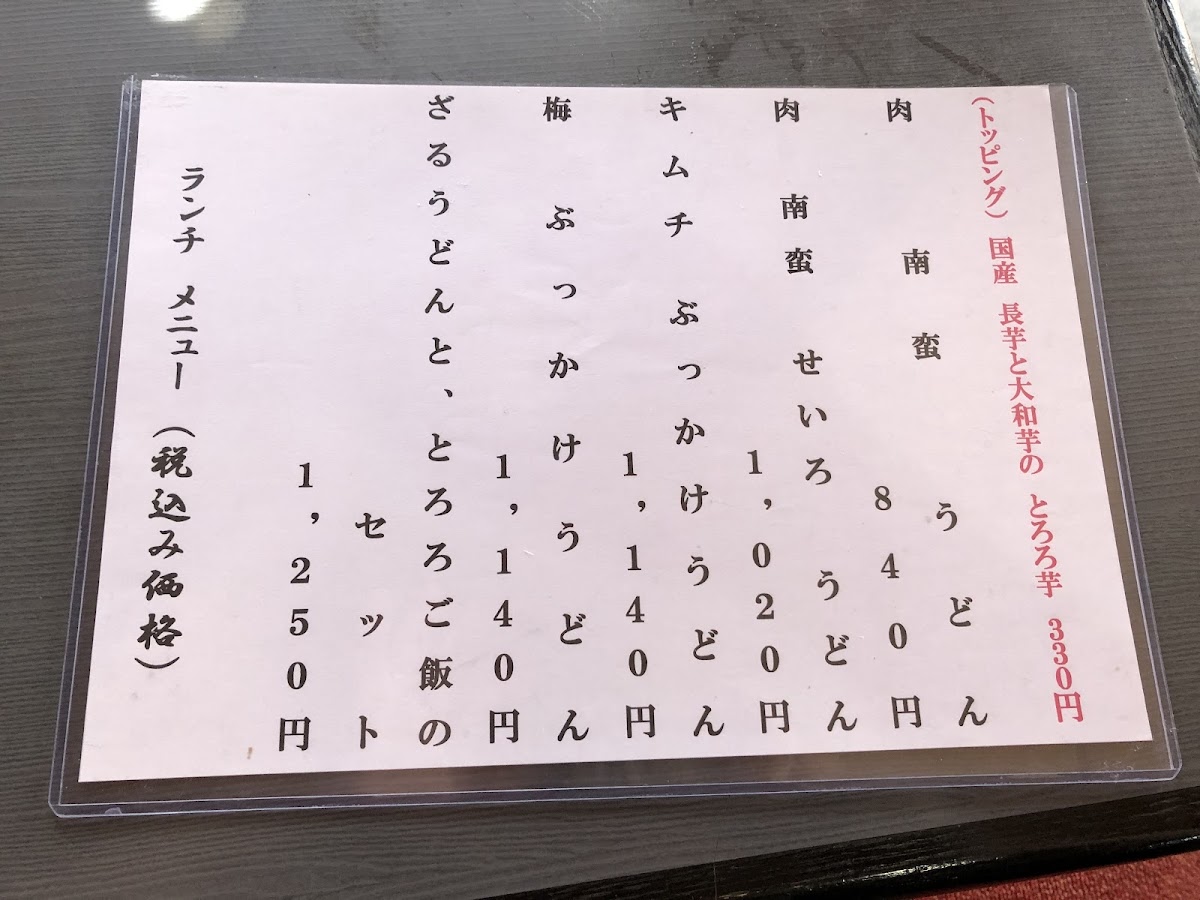 (トッピング) 国産 長芋と大和芋の とろろ芋 330円
肉 南蛮 うどん
840円
肉 南蛮 せいろ うどん
1,020円
キムチ ぶっかけうどん
1,140円
梅 ぶっかけうどん
1,140円
ざるうどんと、とろろご飯の
セット
1,250円
ランチ メニュー (税込み価格)